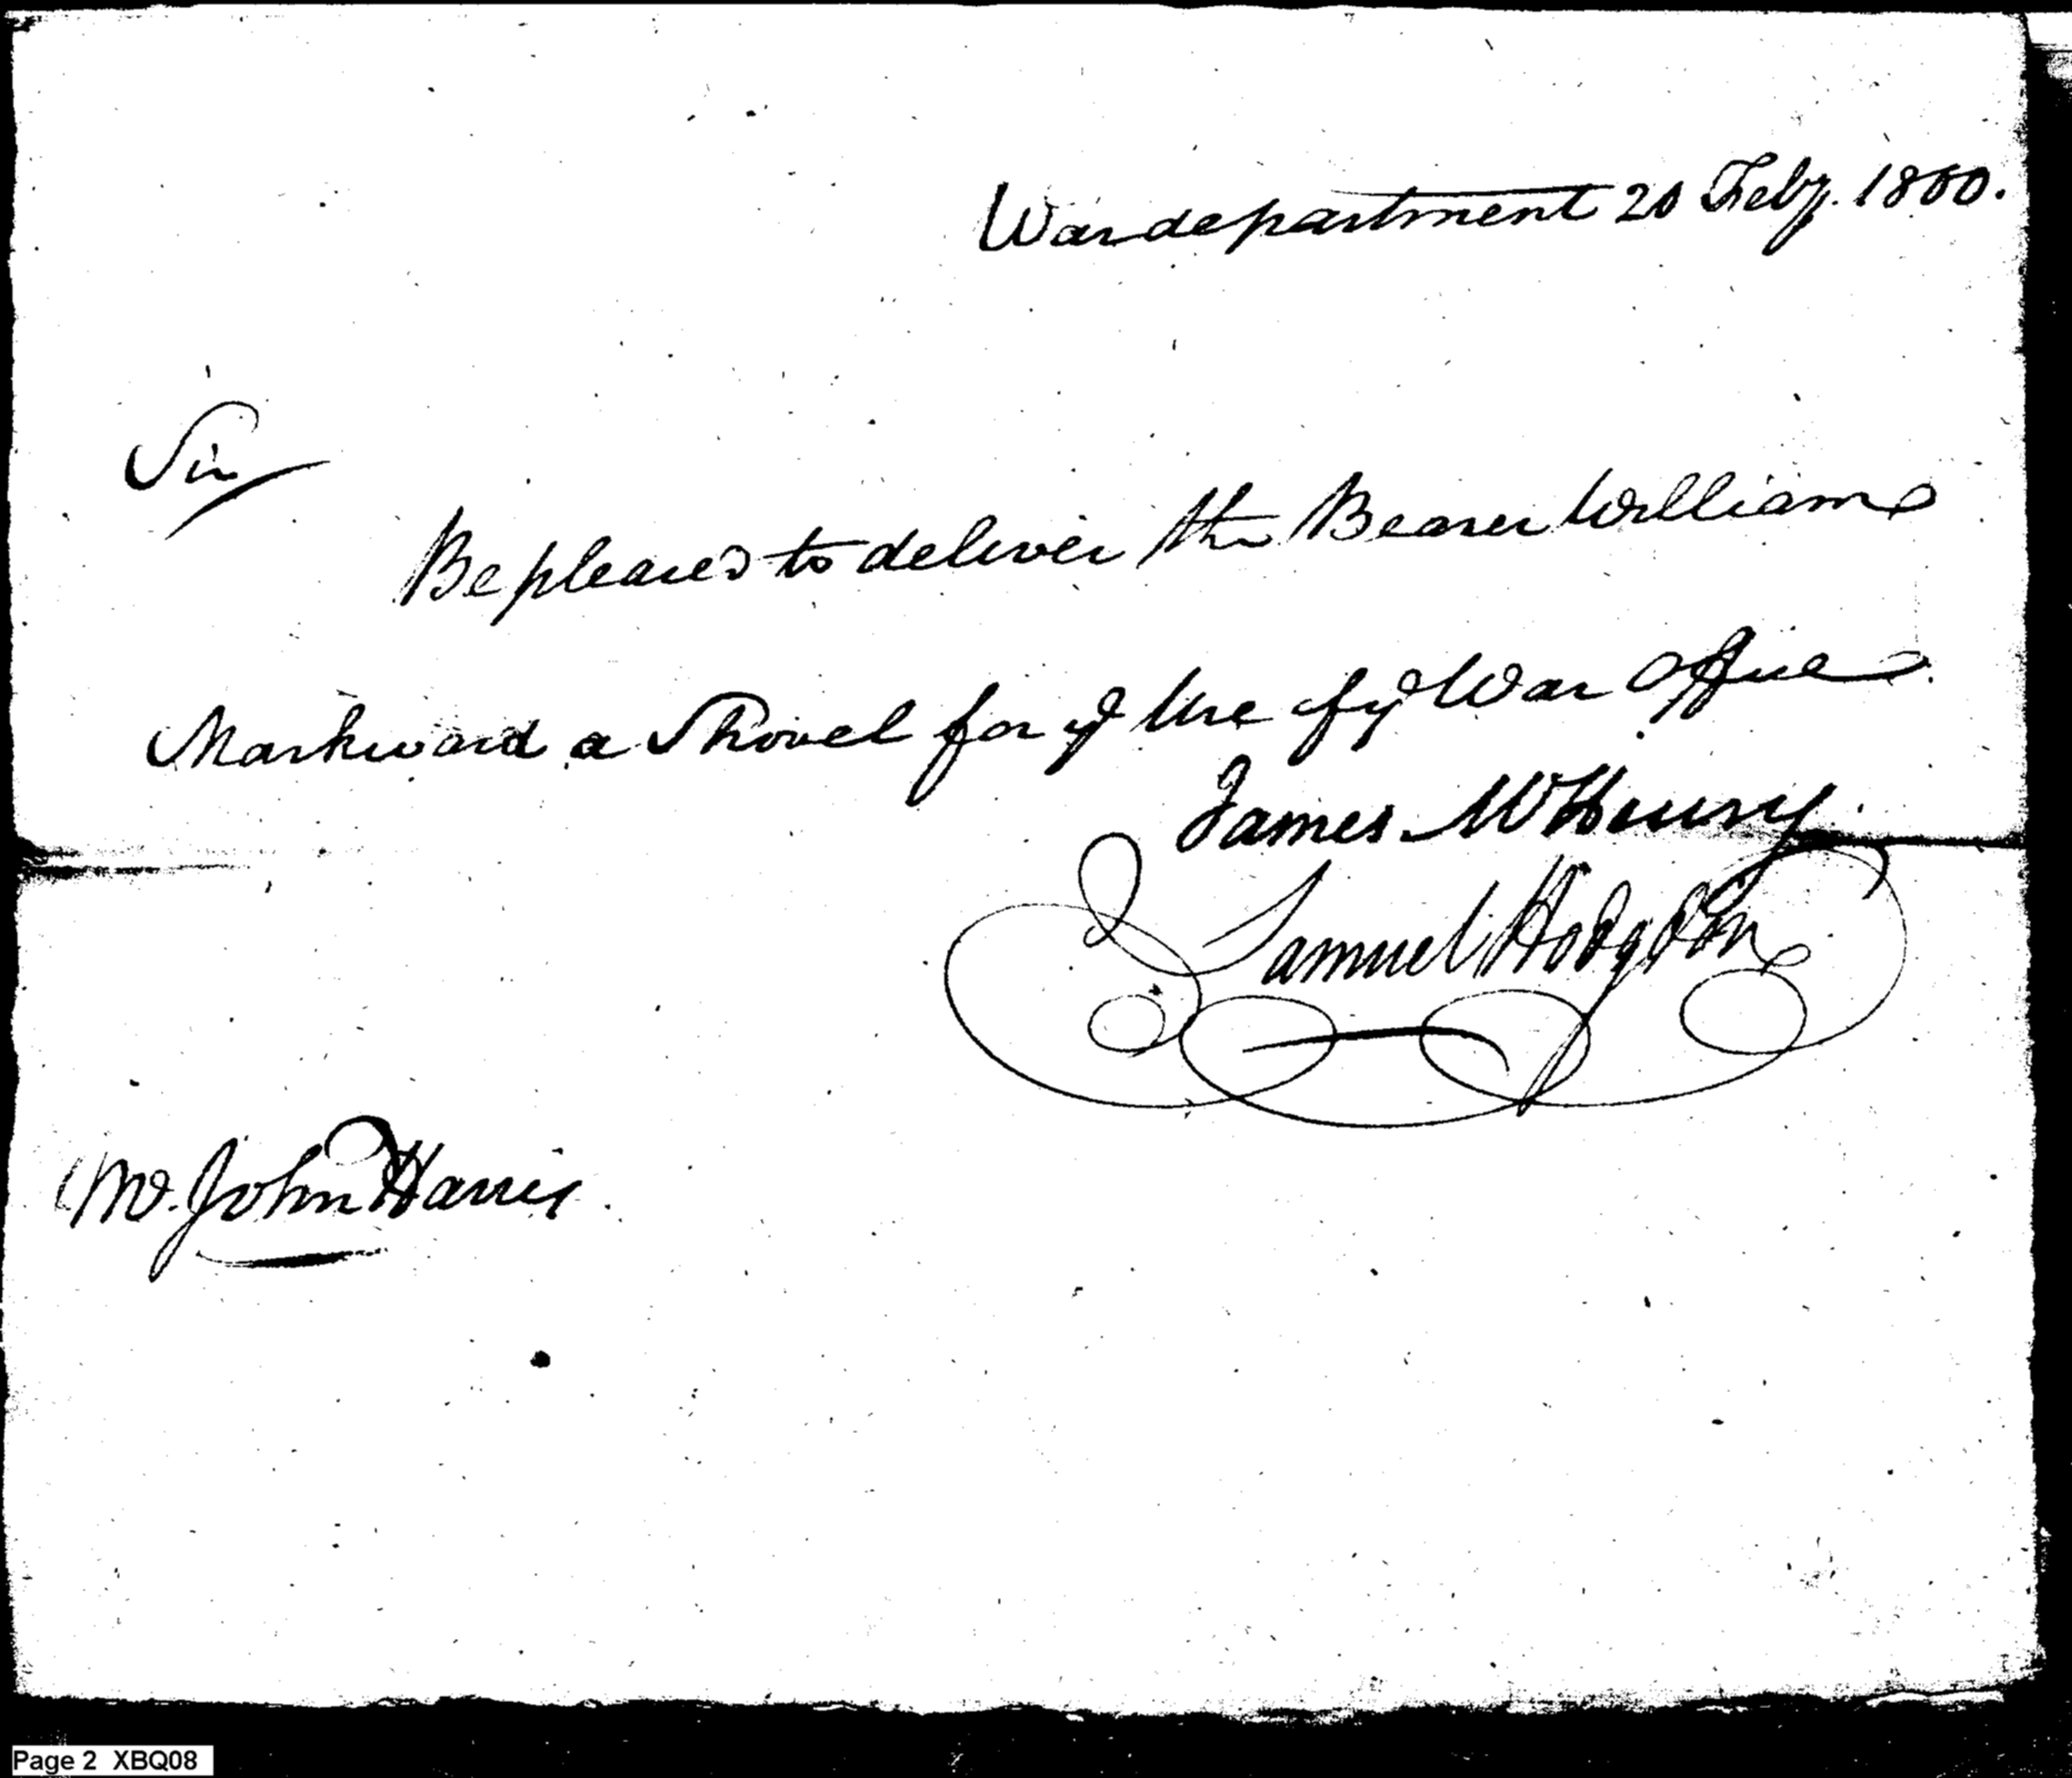 War department 20 Feby. 1800.
Sir
Be pleased to deliver the Bearer William
Markward a Shovel for ye Use of ye War Office
James McHenry
Samuel Hodgdon
Mr. John Harris.
Page 2 XBQ08